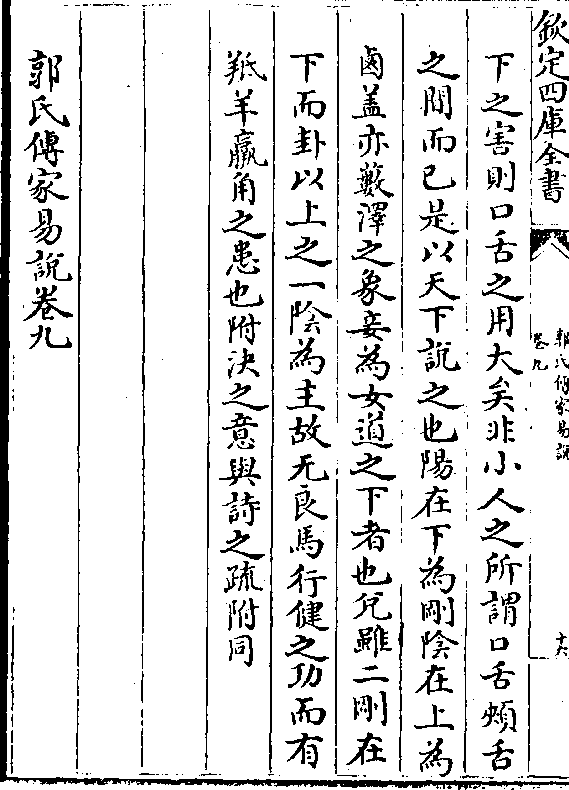 欽定四庫全書
郭氏傳家易說
卷九
十六
下之害則口舌之用大矣非小人之所謂口舌頰舌
之間而已是以天下說之也陽在下為剛陰在上為
鹵盖亦藪澤之象妾為女道之下者也兊雖二剛在
下而卦以上之一陰為主故无良馬行健之功而有
羝羊羸角之患也附決之意與詩之疏附同
郭氏傳家易說卷九